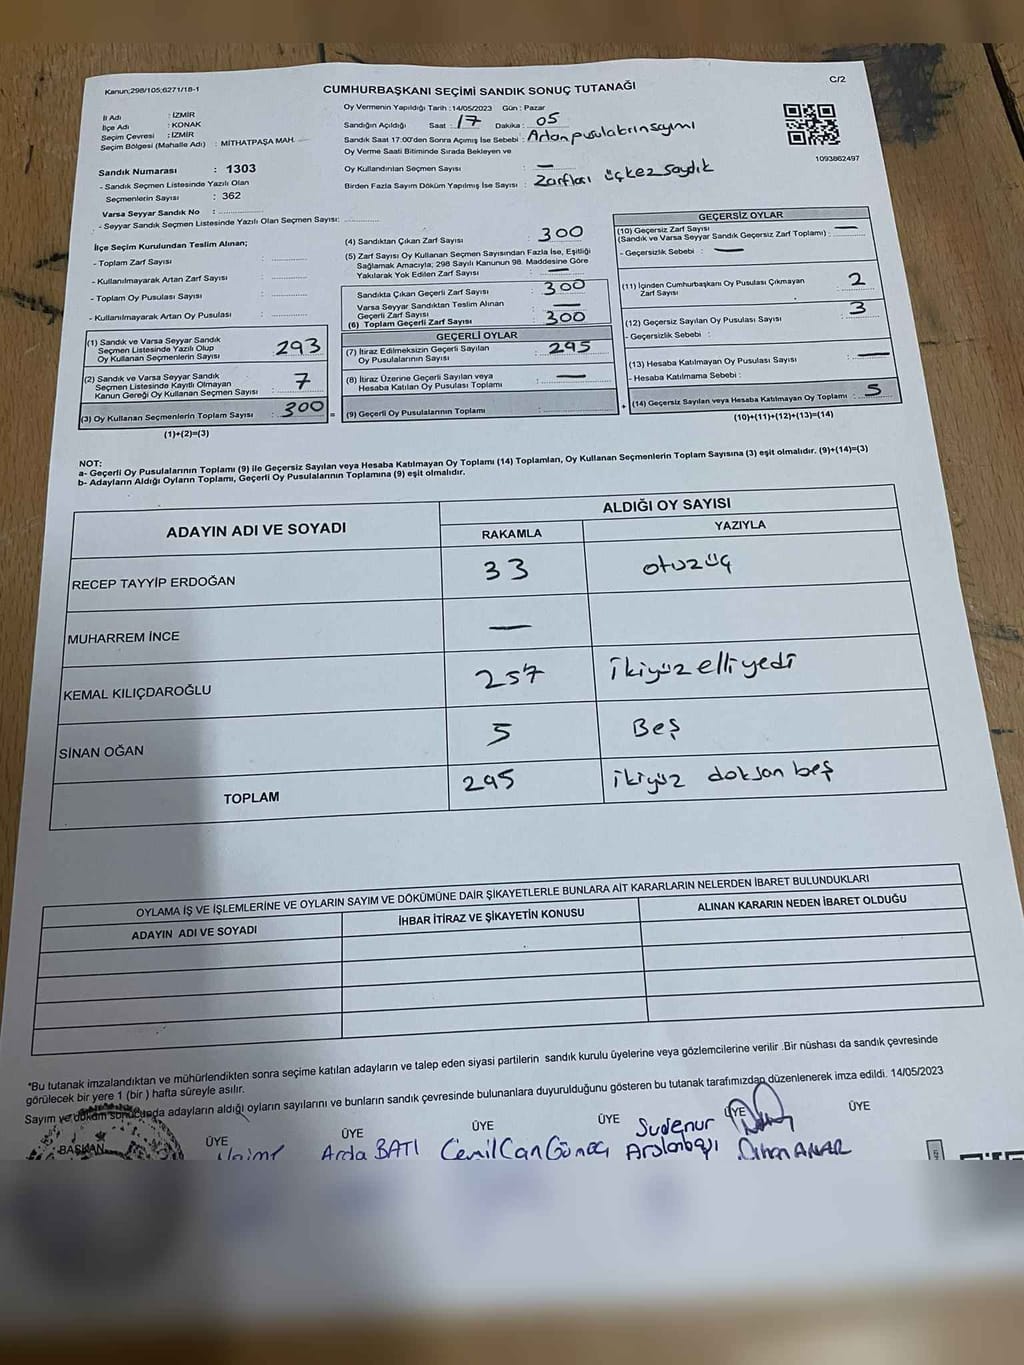 Kanun;298/105;6271/18-1
CUMHURBAŞKANI SEÇİMİ SANDIK SONUÇ TUTANAĞI
C/2
İl Adı : İZMİR
İlçe Adı : KONAK
Seçim Çevresi : İZMİR
Seçim Bölgesi (Mahalle Adı) : MİTHATPAŞA MAH.
Sandık Numarası : 1303
- Sandık Seçmen Listesinde Yazılı Olan
Seçmenlerin Sayısı : 362
Varsa Seyyar Sandık No :
- Seyyar Sandık Seçmen Listesinde Yazılı Olan Seçmen Sayısı:
Oy Vermenin Yapıldığı Tarih : 14/05/2023 Gün : Pazar
Sandığın Açıldığı Saat : 17 Dakika : 05
Sandık Saat 17:00'den Sonra Açımış İse Sebebi : Artan pusulaların sayımı
Oy Verme Saati Bitiminde Sırada Bekleyen ve
Oy Kullandırılan Seçmen Sayısı : —
Birden Fazla Sayım Döküm Yapılmış İse Sayısı : Zarfları üç kez saydık
1093862497
İlçe Seçim Kurulundan Teslim Alınan;
- Toplam Zarf Sayısı :
- Kullanılmayarak Artan Zarf Sayısı :
- Toplam Oy Pusulası Sayısı :
- Kullanılmayarak Artan Oy Pusulası :
(1) Sandık ve Varsa Seyyar Sandık
Seçmen Listesinde Yazılı Olup
Oy Kullanan Seçmenlerin Sayısı : 293
(2) Sandık ve Varsa Seyyar Sandık
Seçmen Listesinde Kayıtlı Olmayan
Kanun Gereği Oy Kullanan Seçmen Sayısı : 7
(3) Oy Kullanan Seçmenlerin Toplam Sayısı : 300 =
(1)+(2)=(3)
(4) Sandıktan Çıkan Zarf Sayısı 300
(5) Zarf Sayısı Oy Kullanan Seçmen Sayısından Fazla İse, Eşitliği
Sağlamak Amacıyla; 298 Sayılı Kanunun 98. Maddesine Göre
Yakılarak Yok Edilen Zarf Sayısı : —
Sandıkta Çıkan Geçerli Zarf Sayısı : 300
Varsa Seyyar Sandıktan Teslim Alınan
Geçerli Zarf Sayısı : —
(6) Toplam Geçerli Zarf Sayısı : 300
GEÇERLİ OYLAR
(7) İtiraz Edilmeksizin Geçerli Sayılan
Oy Pusulalarının Sayısı : 295
(8) İtiraz Üzerine Geçerli Sayılan veya
Hesaba Katılan Oy Pusulası Toplamı : —
(9) Geçerli Oy Pusulalarının Toplamı : +
GEÇERSİZ OYLAR
(10) Geçersiz Zarf Sayısı
(Sandık ve Varsa Seyyar Sandık Geçersiz Zarf Toplamı) : —
- Geçersizlik Sebebi : —
(11) İçinden Cumhurbaşkanı Oy Pusulası Çıkmayan
Zarf Sayısı : 2
(12) Geçersiz Sayılan Oy Pusulası Sayısı : 3
- Geçersizlik Sebebi :
(13) Hesaba Katılmayan Oy Pusulası Sayısı : —
- Hesaba Katılmama Sebebi :
(14) Geçersiz Sayılan veya Hesaba Katılmayan Oy Toplamı : 5
(10)+(11)+(12)+(13)=(14)
NOT:
a- Geçerli Oy Pusulalarının Toplamı (9) ile Geçersiz Sayılan veya Hesaba Katılmayan Oy Toplamı (14) Toplamları, Oy Kullanan Seçmenlerin Toplam Sayısına (3) eşit olmalıdır. (9)+(14)=(3)
b- Adayların Aldığı Oyların Toplamı, Geçerli Oy Pusulalarının Toplamına (9) eşit olmalıdır.
ADAYIN ADI VE SOYADI
ALDIĞI OY SAYISI
RAKAMLA YAZIYLA
RECEP TAYYİP ERDOĞAN 33 otuzüç
MUHARREM İNCE —
KEMAL KILIÇDAROĞLU 257 ikiyüz elli yedi
SİNAN OĞAN 5 Beş
TOPLAM 295 ikiyüz doksan beş
OYLAMA İŞ VE İŞLEMLERİNE VE OYLARIN SAYIM VE DÖKÜMÜNE DAİR ŞİKAYETLERLE BUNLARA AİT KARARLARIN NELERDEN İBARET BULUNDUKLARI
ADAYIN ADI VE SOYADI İHBAR İTİRAZ VE ŞİKAYETİN KONUSU ALINAN KARARIN NEDEN İBARET OLDUĞU
*Bu tutanak imzalandıktan ve mühürlendikten sonra seçime katılan adayların ve talep eden siyasi partilerin sandık kurulu üyelerine veya gözlemcilerine verilir .Bir nüshası da sandık çevresinde
görülecek bir yere 1 (bir ) hafta süreyle asılır.
Sayım ve döküm sonucunda adayların aldığı oyların sayılarını ve bunların sandık çevresinde bulunanlara duyurulduğunu gösteren bu tutanak tarafımızdan düzenlenerek imza edildi. 14/05/2023
BAŞKAN ÜYE ÜYE ÜYE ÜYE ÜYE ÜYE
Arda BATI Cemil Can Günaç Sudenur Arslanbaşı